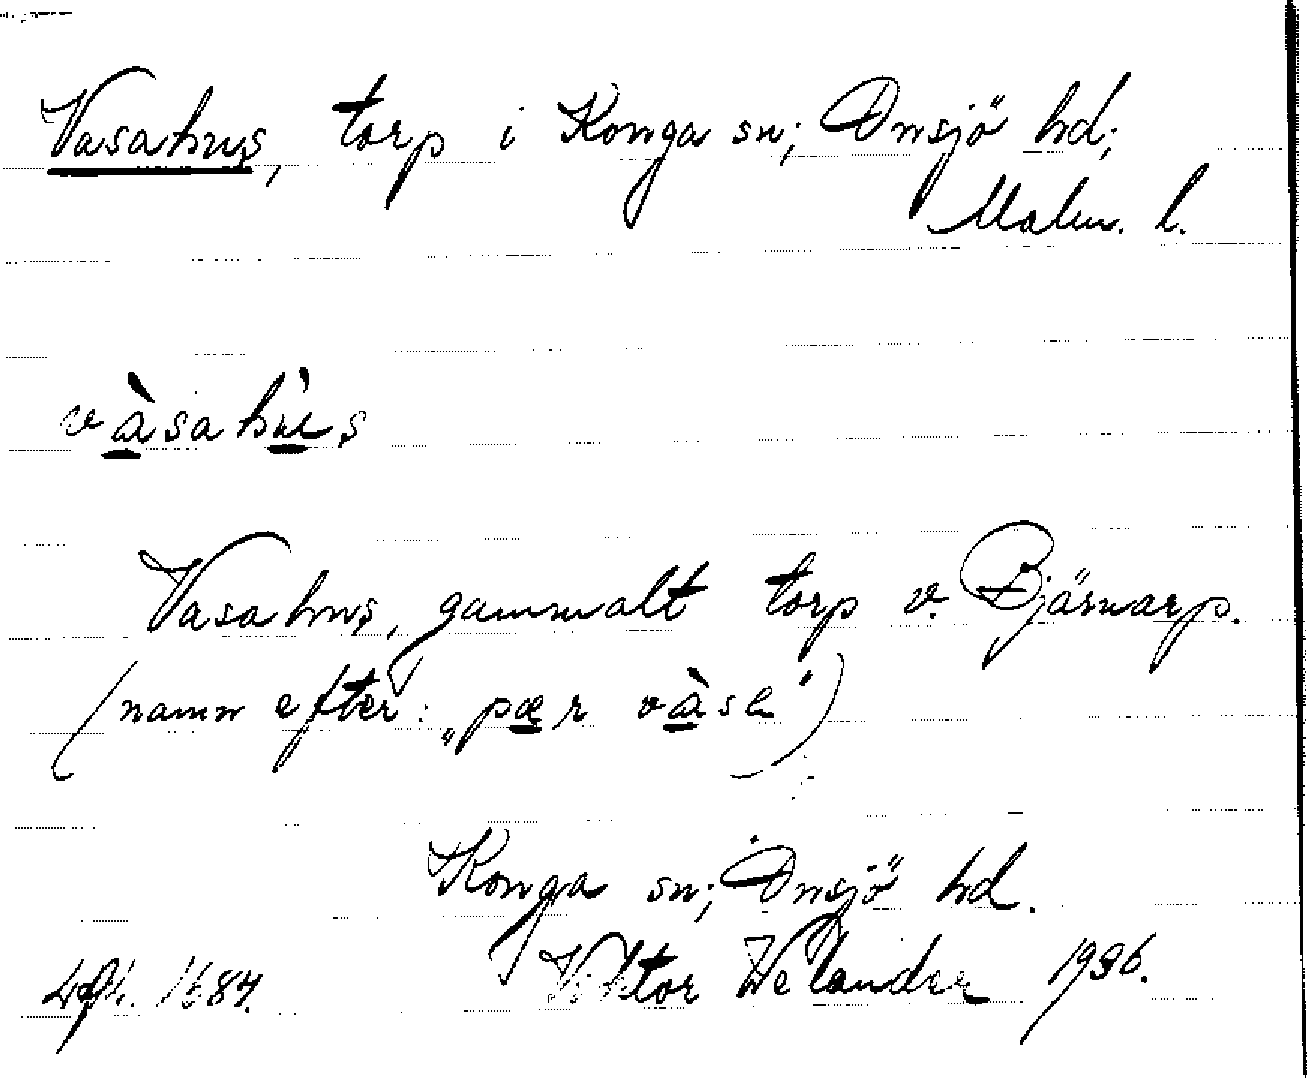 Vasahus, torp i Konga sn; Onsjö hd;
Malm. l.
vàsahùs
Vasahus, gammalt torp v. Bjärnarp.
(namn efter: „pær vàsa")
Konga sn; Onsjö hd.
Viktor Welander 1936.
1684.